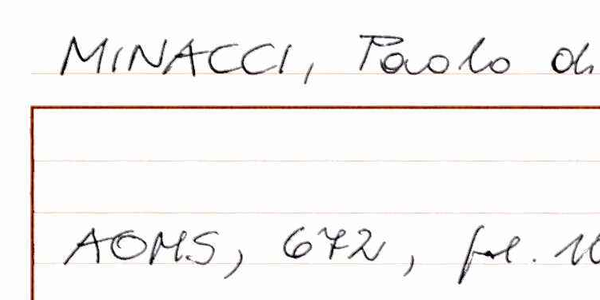 MINACCI, Paolo di
AOMS, 672, fol.